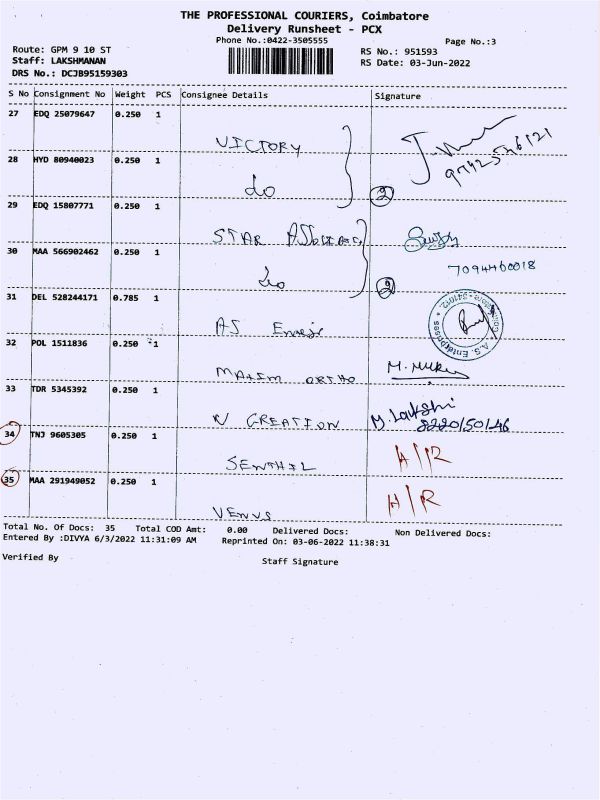 THE PROFESSIONAL COURIERS, Coimbatore
Delivery Runsheet - PCX
Phone No.:0422-3505555
Page No.:3
Route: GPM 9 10 ST
RS No.: 951593
Staff: LAKSHMANAN
RS Date: 03-Jun-2022
DRS No.: DCJB95159303
S No Consignment No Weight PCS Consignee Details Signature
27 EDQ 25079647 0.250 1
VICTORY
28 HYD 80940023 0.250 1
do 2
29 EDQ 15807771 0.250 1
STAR
30 MAA 566902462 0.250 1
7094460018
do 2
31 DEL 528244171 0.785 1
AS
A.S. Enterprises
32 POL 1511836 0.250 1
ORTHO M.
33 TDR 5345392 0.250 1
V CREATION M. Lakshi
8220150146
34 TNJ 9605305 0.250 1
SENTHIL A/R
35 MAA 291949052 0.250 1
VENUS A/R
Total No. Of Docs: 35 Total COD Amt: 0.00 Delivered Docs: Non Delivered Docs:
Entered By :DIVYA 6/3/2022 11:31:09 AM Reprinted On: 03-06-2022 11:38:31
Verified By
Staff Signature